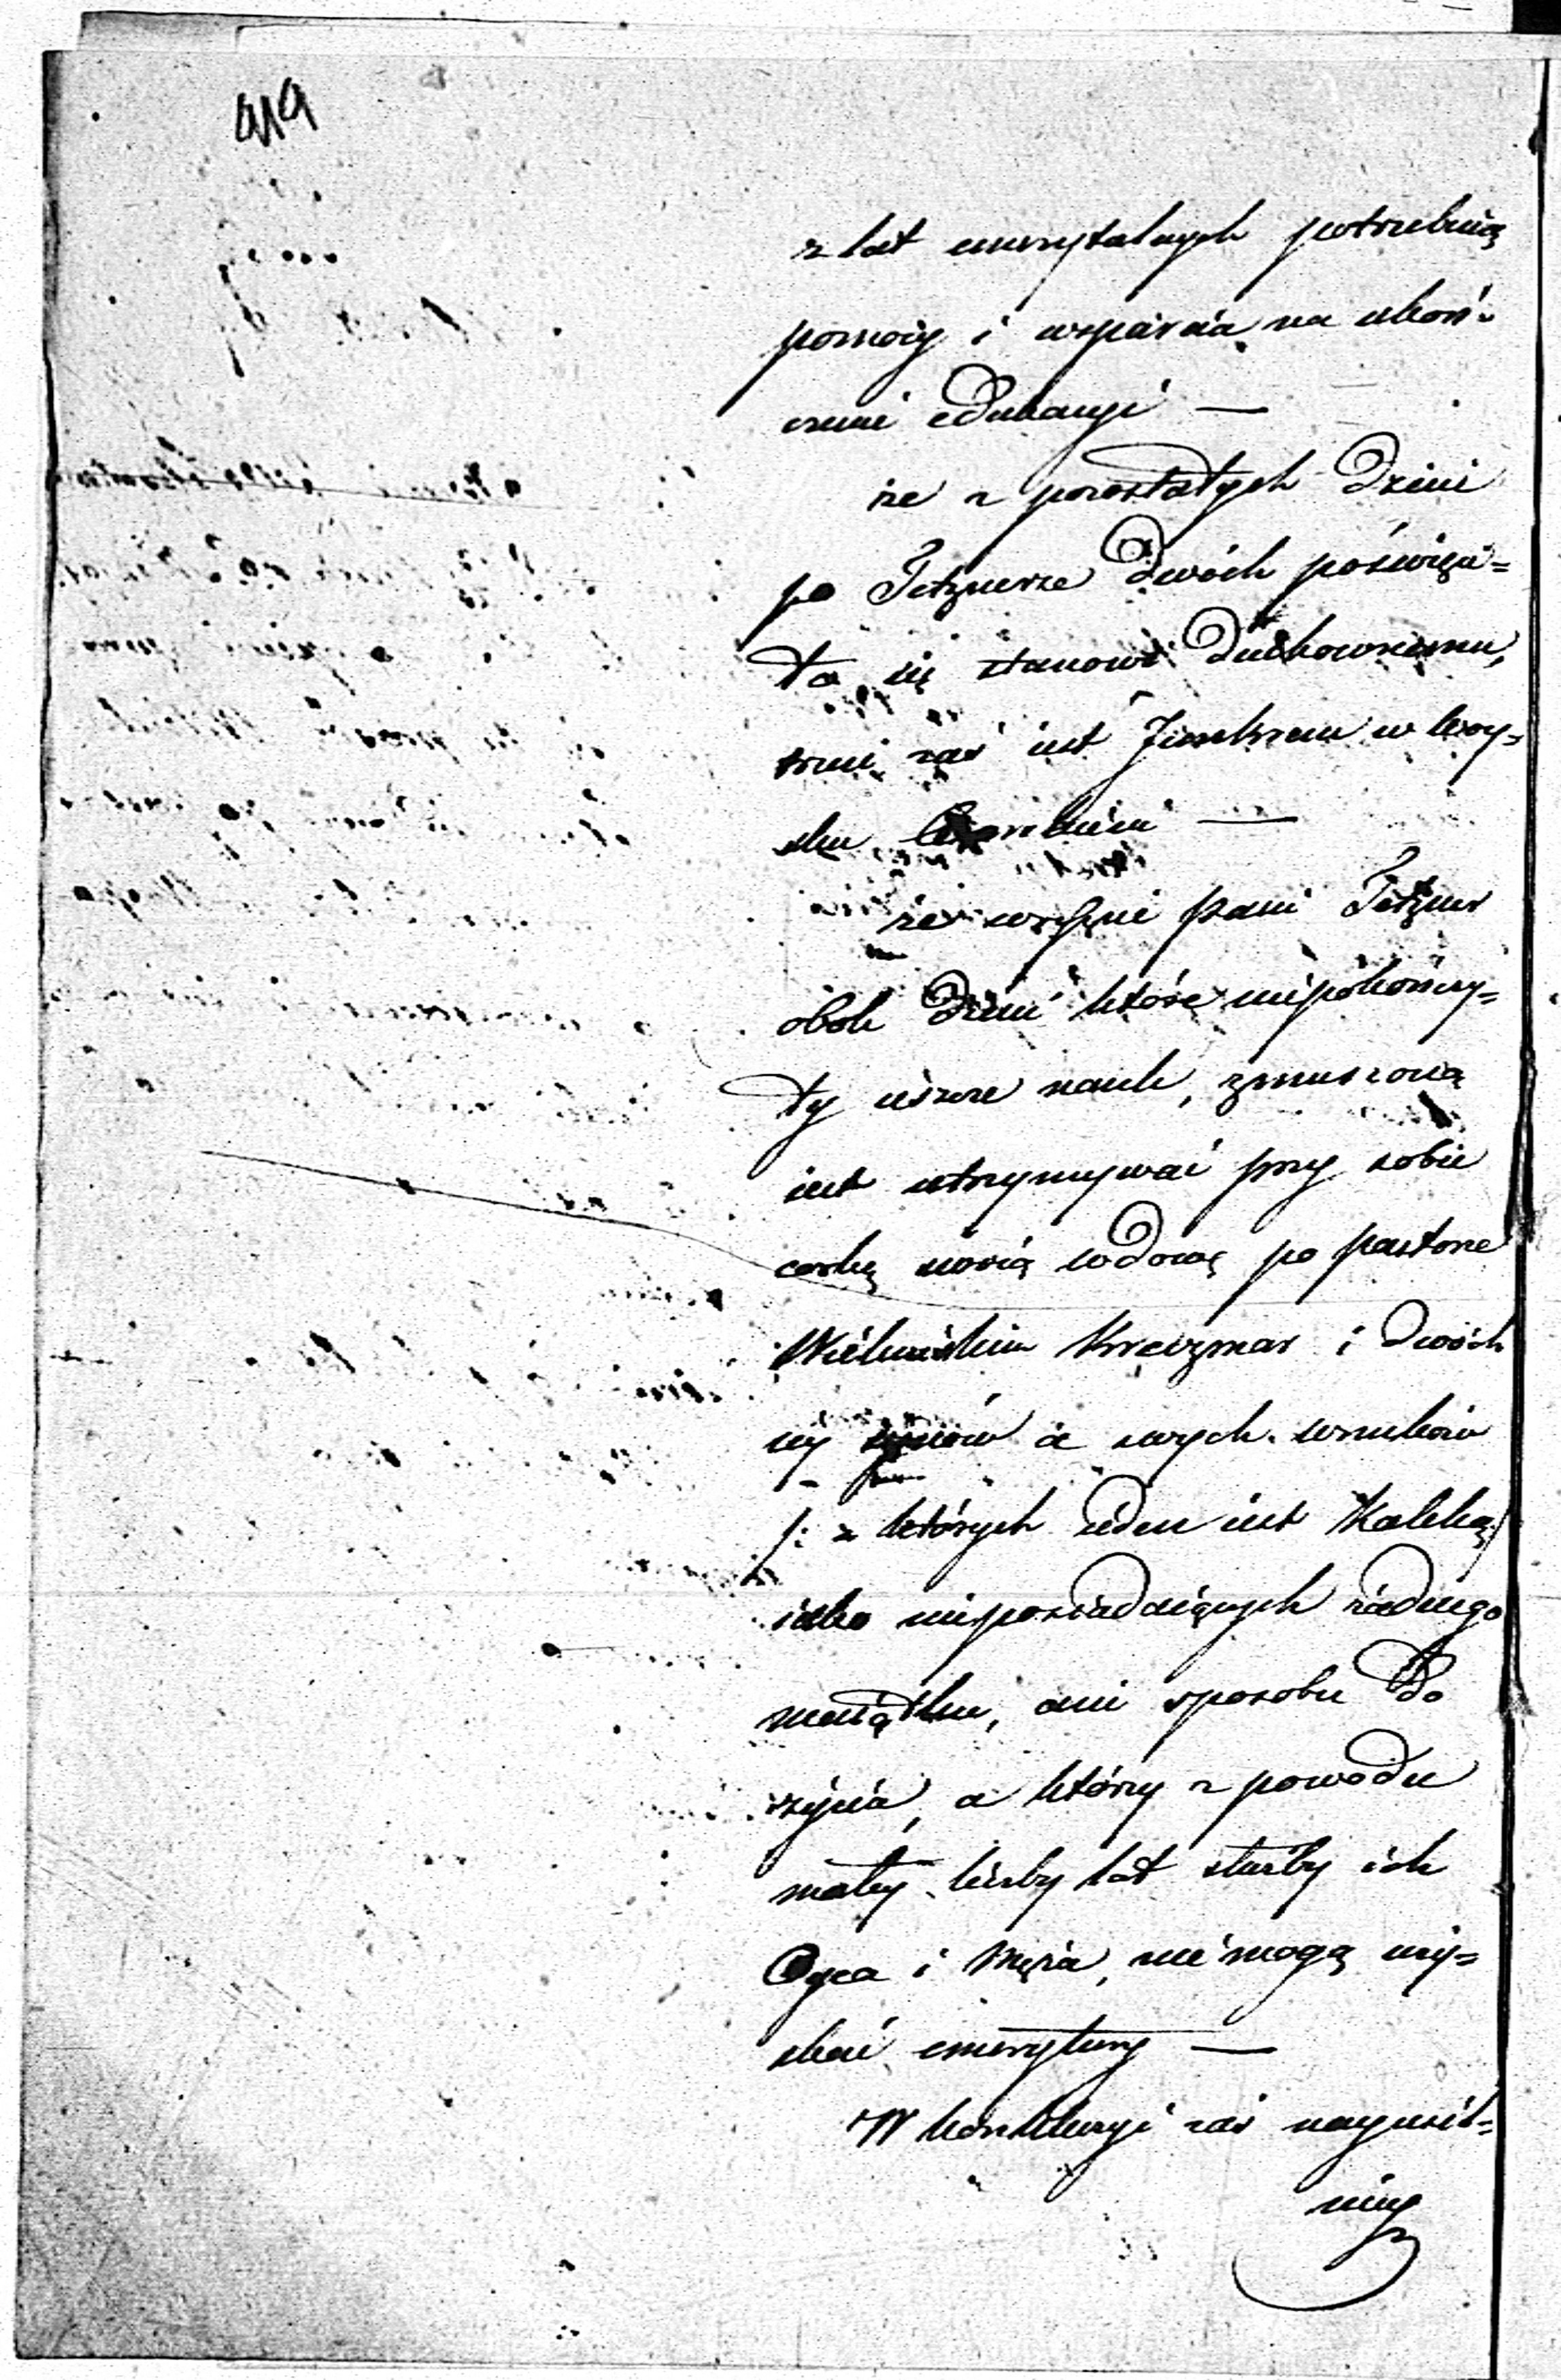 z lat emerytalnych potrzebuią
pomocy i wsparcia na ukoń-
czenie edukacyi —
że z pozostałych Dzieci
po Tetznerze Dwóch poświęci=
ło się stanowi Duchownemu,
trzeci zaś iest Junkrem w Woy=
sku —
że wreszcie Pani Tetzner
obok Dzieci które niepokończy=
ły ieszcze nauk, zmuszoną
iest utrzymywać przy sobie
corkę swoią wdowę po pastorze
Wieluńskim Kreczmar i dwóch
iey synów a swych wnuków
/: z których ieden iest Kaleką/
iako nieposiadaiących żadnego
maiątku, ani sposobu do
życia, a którzy z powodu
małey liczby lat służby ich
Oyca i Męża, nie mogą uzy=
skać emerytury —
W konkluzyi zaś nayusil=
niey